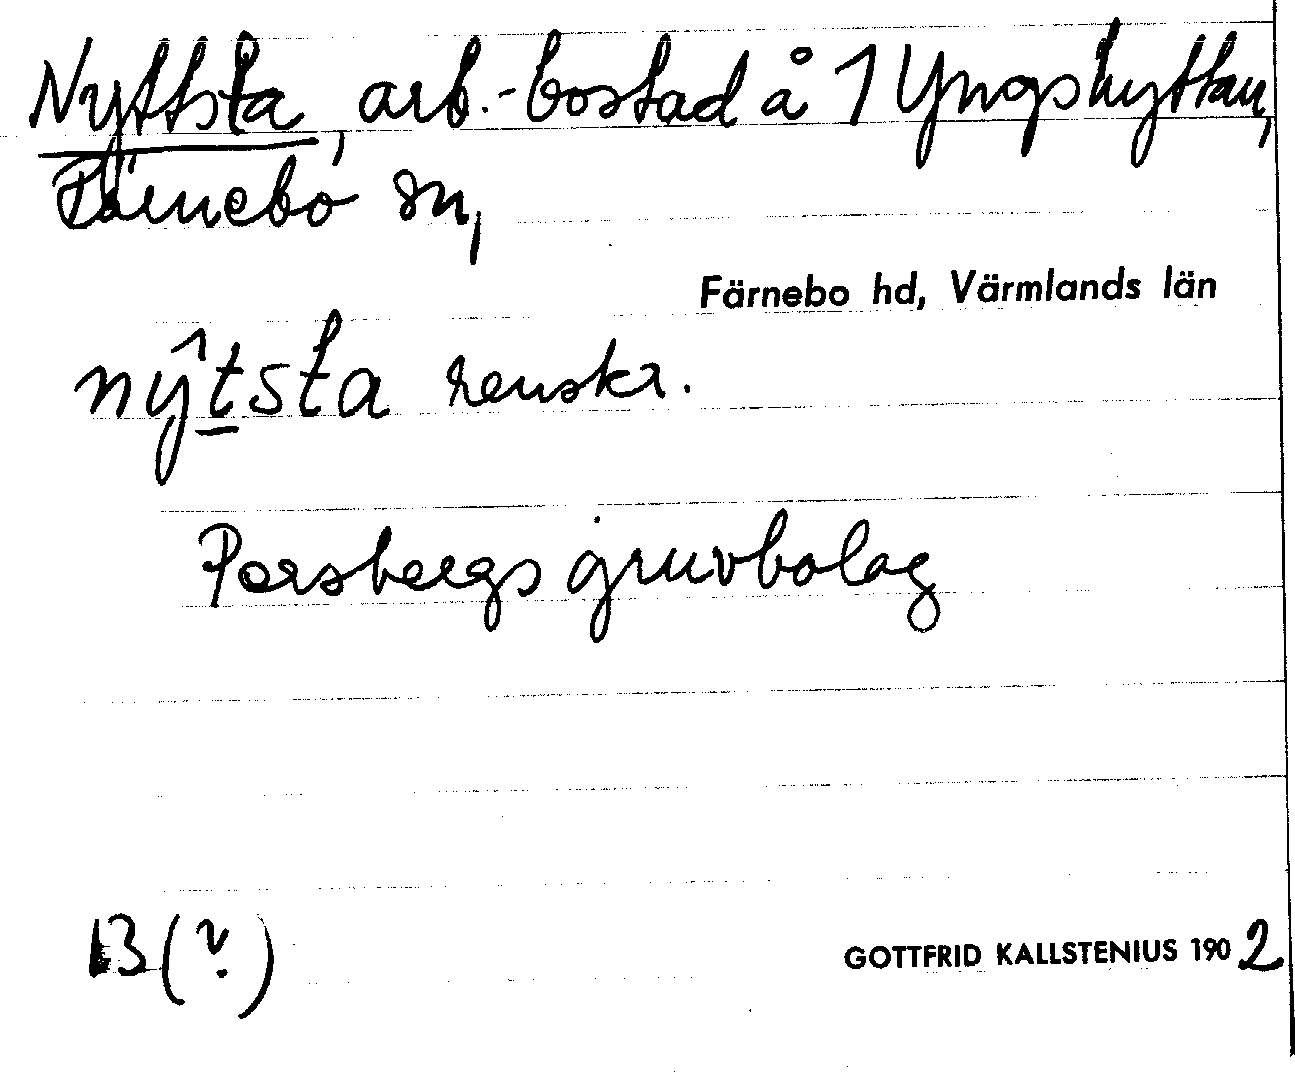 Nyttsta, arb.-bostad å 1 Yngshyttan,
Färnebo sn,
Färnebo hd, Värmlands län
nŷtsta renskr.
Persbergs gruvbolag
B (?)
GOTTFRID KALLSTENIUS 1902